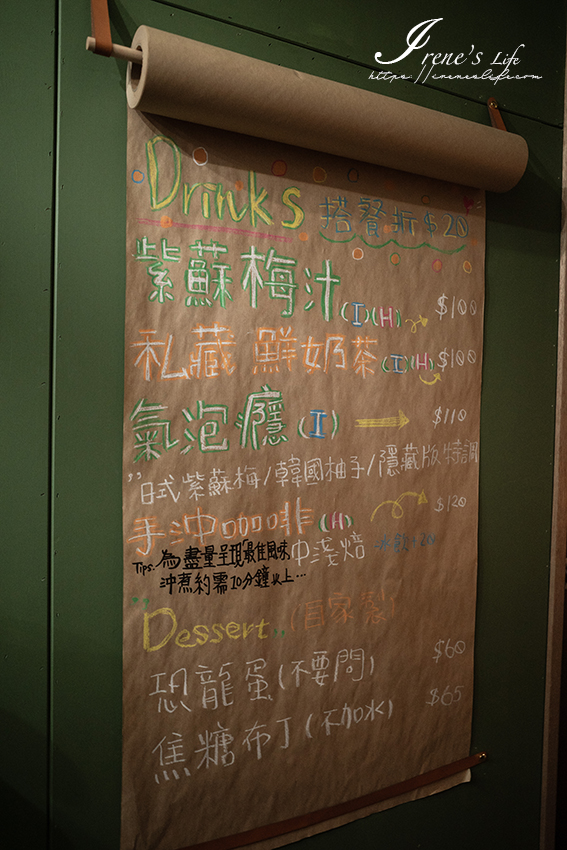 Irene's Life
https://ireneslife.com
Drinks 搭餐折$20
紫蘇梅汁(I)(H) $100
私藏鮮奶茶(I)(H) $100
氣泡癮(I) $110
日式紫蘇梅/韓國柚子/隱藏版特調
手沖咖啡(H) $120
Tips. 為盡量呈現「最佳風味 中淺焙 冰飲+20
沖煮約需10分鐘以上...
Dessert..(自家製)
恐龍蛋(不要問) $60
焦糖布丁(不加水) $65